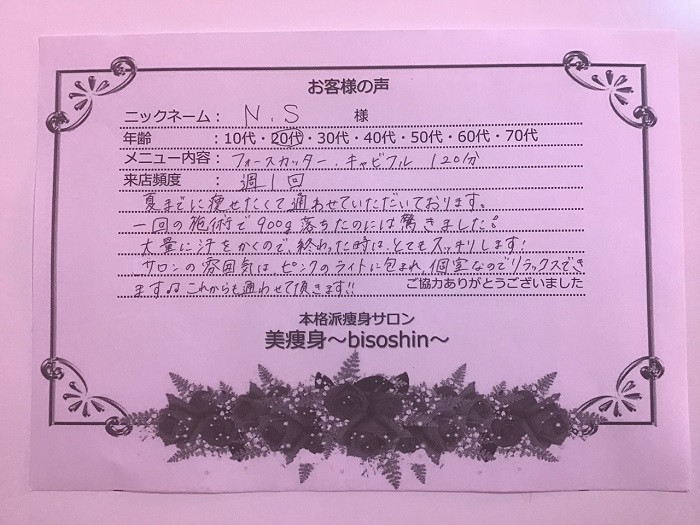 お客様の声
ニックネーム： N.S 様
年齢 ：10代・20代・30代・40代・50代・60代・70代
メニュー内容：フォースカッター・キャビフル 120分
来店頻度 ： 週1回
夏までに痩せたくて通わせていただいております。
一回の施術で900g落ちたのには驚きました。
大量に汗をかくので、終わった時は、とてもスッキリします!
サロンの雰囲気は、ピンクのライトに包まれ、個室なのでリラックスでき
ます♪♪ これからも通わせて頂きます!! ご協力ありがとうございました
本格派痩身サロン
美痩身～bisoshin～